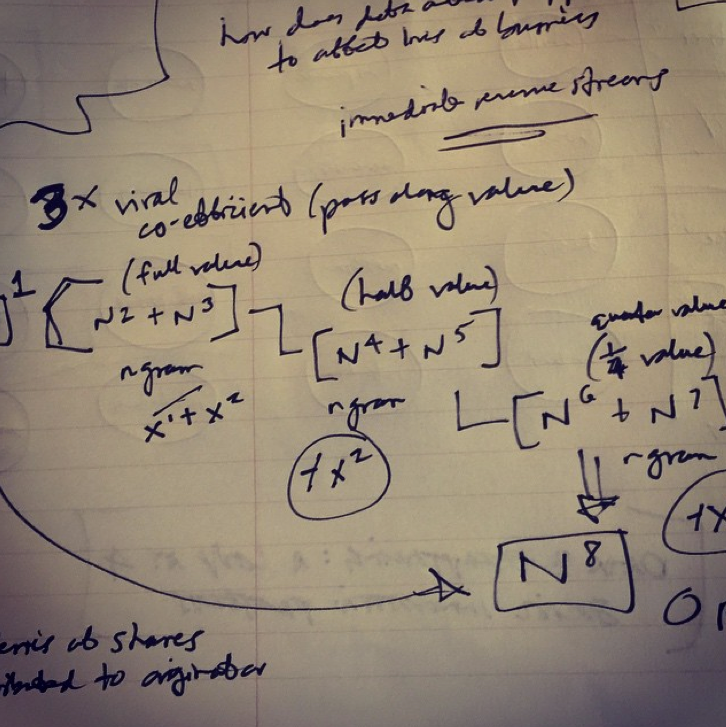 how does data
to affect loss of business
immediate revenue streams
3x viral
co-efficient (pass along value)
(full value)
]1 [N2 + N3]
ngram
x1 + x2
(half value)
[N4 + N5]
ngram
+x2
quarter value
(1/4 value)
[N6 + N7]
ngram
+x
N8
of shares
to originator